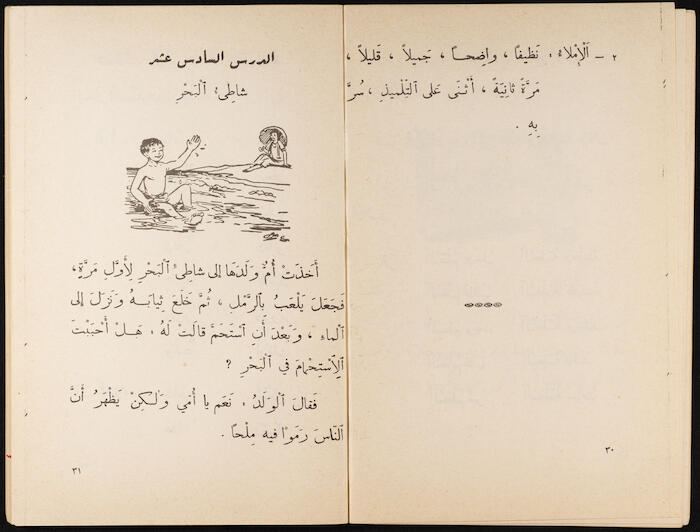 ٢ ــ اَلْإِمْلاءُ : نَظيفًا ، واضِحـًا ، جَميلاً ، قَليلاً ،
مَرَّةً ثانِيَةً ، أَثْنَى عَلى التِّلْميذِ ، سُرَّ
بِهِ .
٣٠
الدرس السادس عشر
شاطِىءُ اَلْبَحْرِ
أَخَذَتْ أُمٌّ وَلَدَها إلى شاطِىءِ اَلْبَحْرِ لِأَوَّلِ مَرَّةٍ ،
فَجَعَلَ يَلْعَبُ بِالرَّمْلِ ، ثُمَّ خَلَعَ ثِيابَـهُ وَنَزَلَ إلى
اَلْماءِ ، وَبَعْدَ أَنِ اَسْتَحَمَّ قالَتْ لَهُ : هَـلْ أَحْبَبْتَ
اَلِاَسْتِحْمامَ في اَلْبَحْرِ ؟
فَقالَ اَلْوَلَدُ : نَعَم يا أُمّي وَلٰـكِنْ يَظْهَرُ أَنَّ
اَلنّاسَ رَمَوْا فيهِ مِلْحاً .
٣١